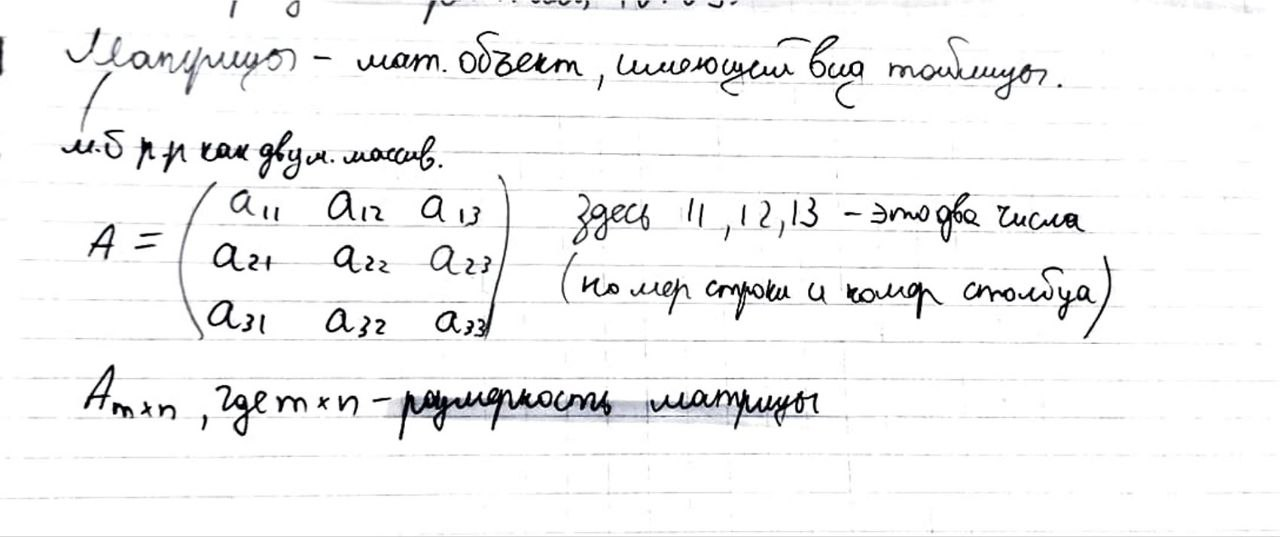 Матрицы – мат. объект, имеющий вид таблицы.
м.б р.р как двум. массив.
A = ( a₁₁ a₁₂ a₁₃
a₂₁ a₂₂ a₂₃
a₃₁ a₃₂ a₃₃ )
здесь 11, 12, 13 – это два числа
(номер строки и номер столбца)
Aₘₓₙ, где m×n – размерность матрицы